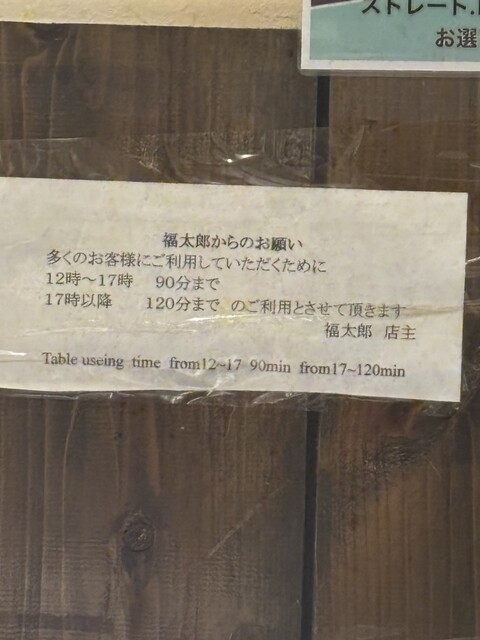 ストレート
お選
福太郎からのお願い
多くのお客様にご利用していただくために
12時～17時　90分まで
17時以降　120分まで　のご利用とさせて頂きます
福太郎　店主
Table useing time from12~17 90min from17~120min